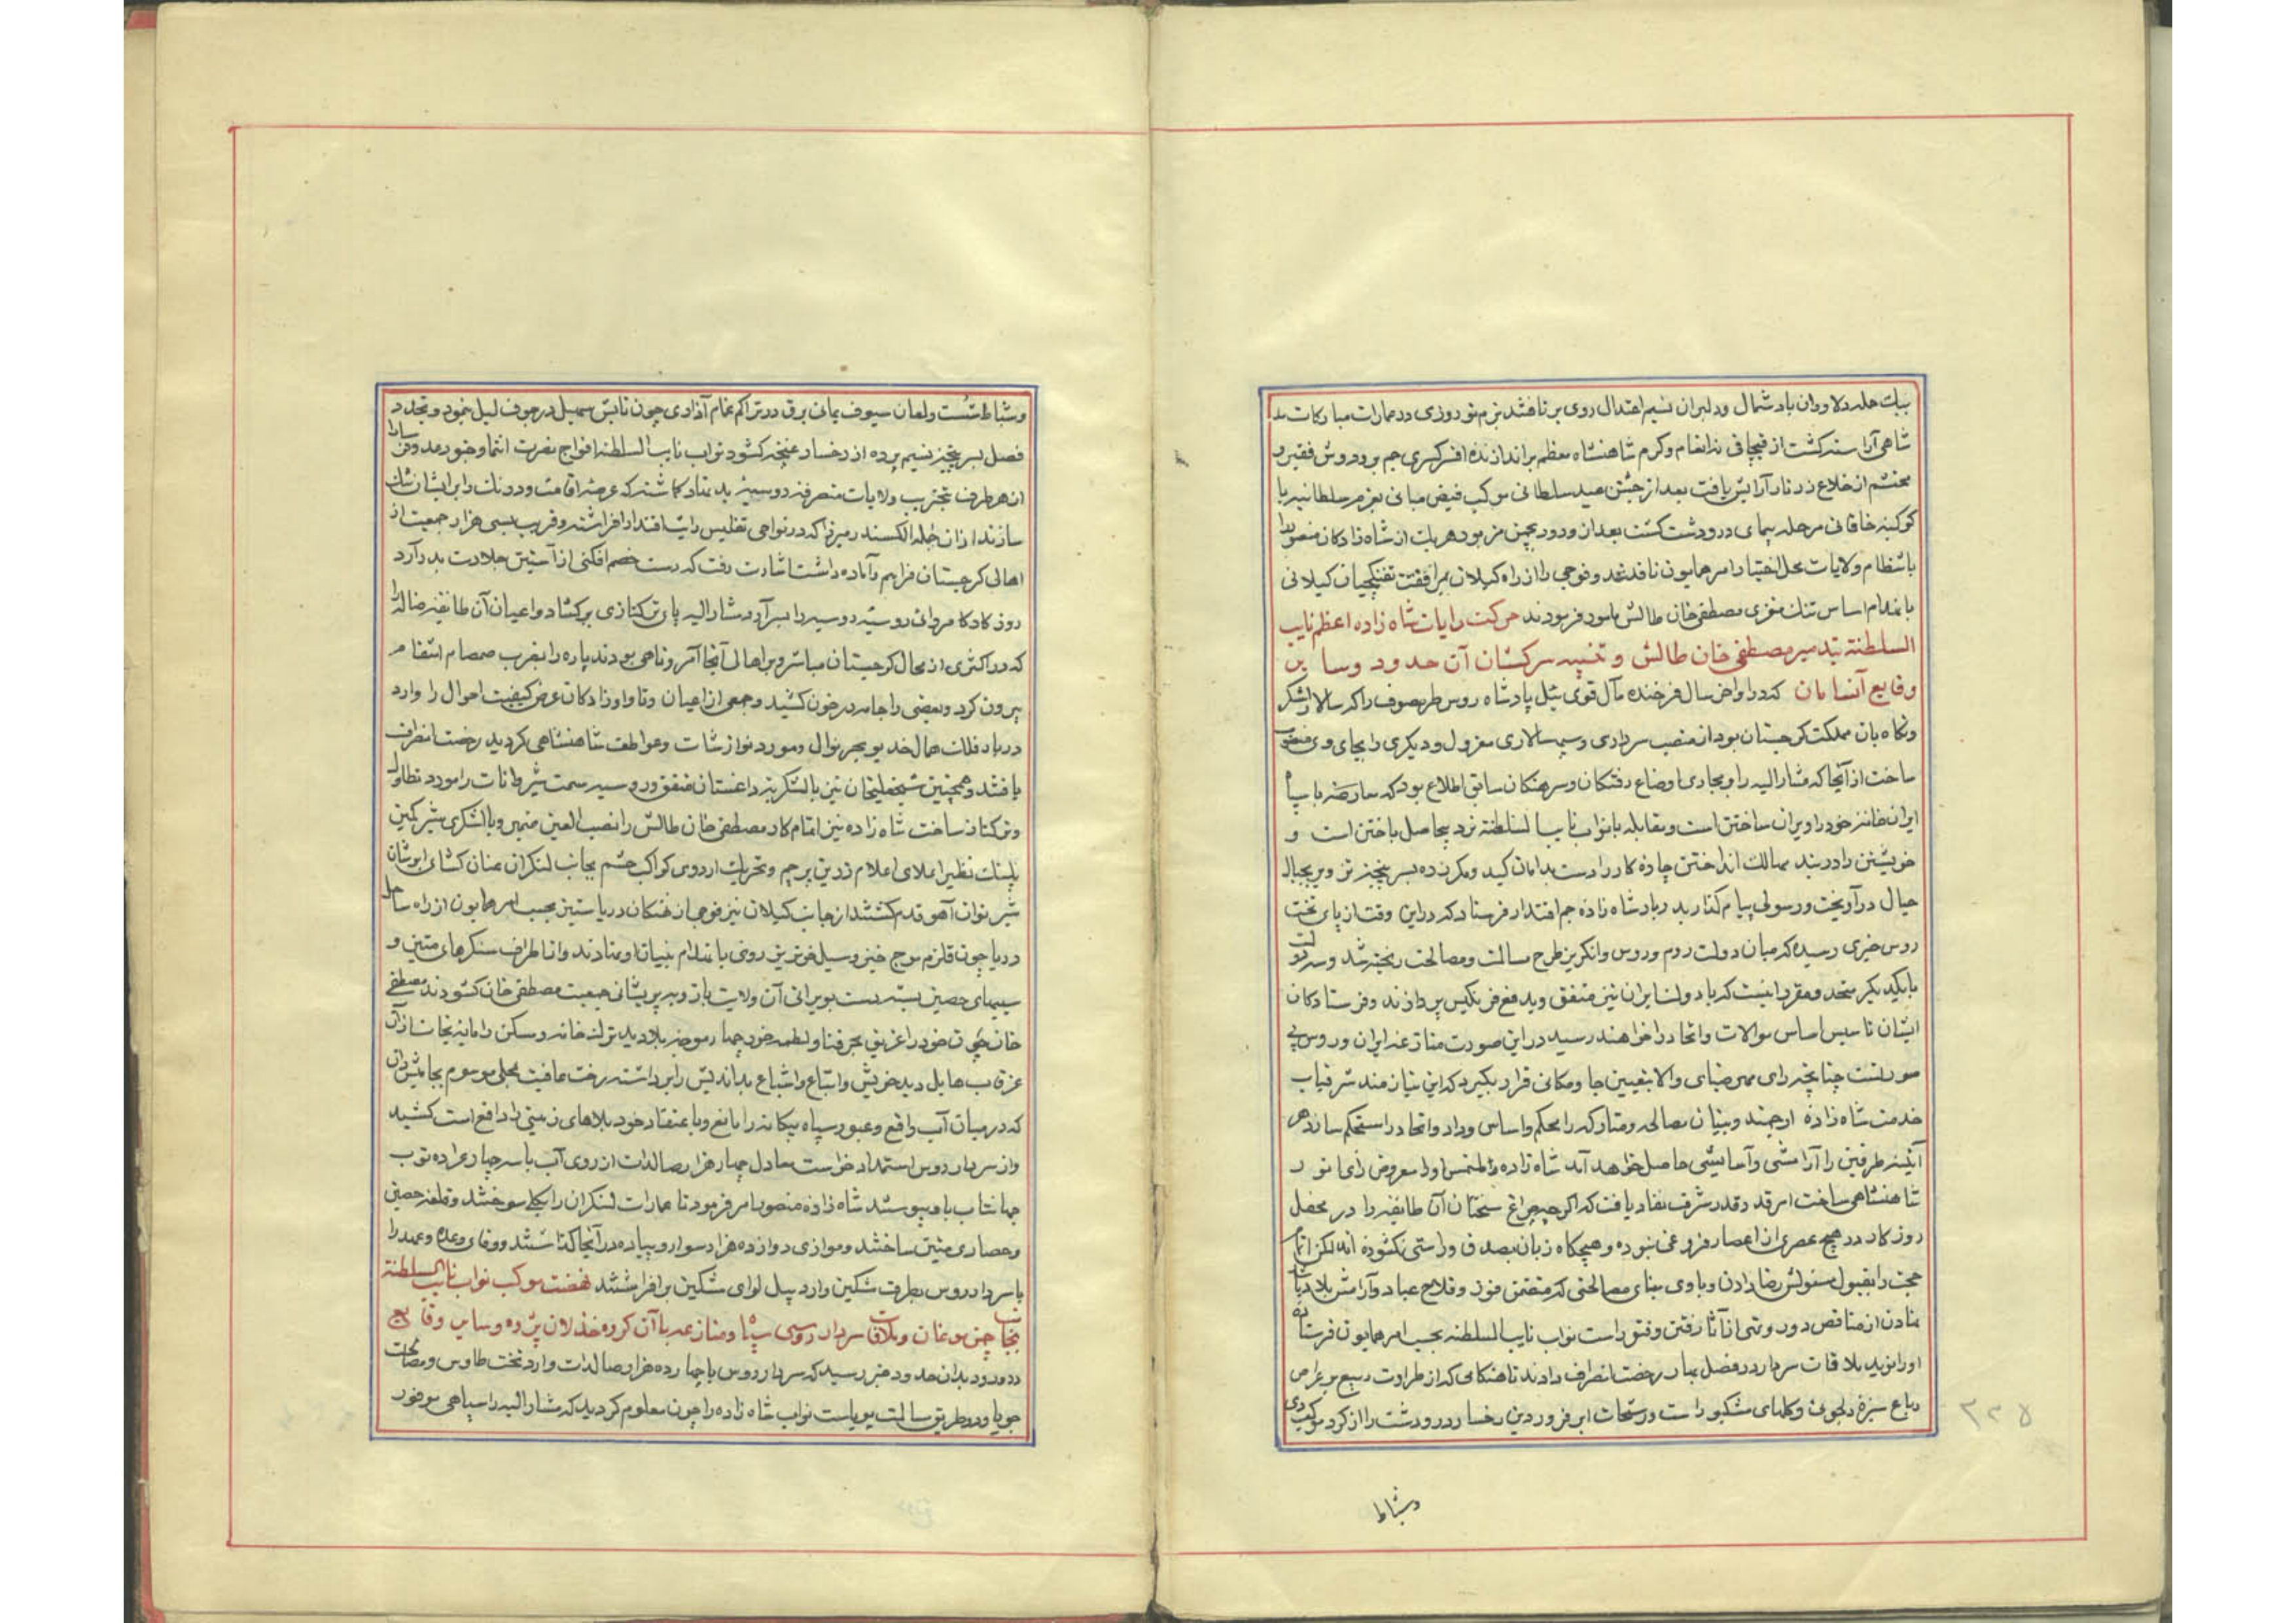 بیک حمله دلاوران باد شمال و دلیران نسیم اعتدال روی برتافتند بزم نوروزی در عمارات مبارکات
شاهی آراسته کشت از قبچاقی نه انعام و کرم شاهنشاه معظم براندازنده افسر کسری و جم بر و دوش فقیر و
محتشم از خلاع زرتار آرایش یافت بعد از جشن عید سلطانی موکب فیض مبانی بعزم سلطانیه با
کوکبه خاقانی مرحله پیمای در و دشت کشت بعد از ورود بچمن مزبور هر یک از شاه زادکان منصور لوا
بانتظام ولایات محل اختیار امر همایون نافذ شد و فوجی را از راه کیلان بمرافقت تفنکچیان کیلانی
بانهدام اساس تنک مغزی مصطفی خان طالش مامور فرمودند حرکت رایات شاه زاده اعظم نایب
السلطنه بتدمیر مصطفی خان طالش و تنبیه سرکشان آن حدود و سایر
وقایع آنسامان که در اواخر سال فرخنده مآل قوی ئیل پادشاه روس طرمصوف را که سالار لشکر
و نکاه بان مملکت کرجستان بود از منصب سرداری و سپهسالاری معزول و دیکری را بجای وی منصوب
ساخت از آنجا که مشار الیه را بمجاری اوضاع رفتکان و سرهنکان سابق اطلاع بود که معارضه با سپاه
ایران خانه خود را ویران ساختن است و مقابله با نواب نایب السلطنه نرد بیحاصل باختن است و
خویشتن را در بند مهالک انداختن چاره کار را دست بدامان کید و مکر زده بسرپنجه تزویر بحبال
حیال در آویخت و رسولی پیام کذار بدربار شاه زاده جم اقتدار فرستاد که در این وقت از پای تخت
روس خبری رسیده که میان دولت روم و روس و انکریز طرح مسالمت و مصالحت ریخته شد و سه دولت
با یکدیکر متحد و مقرر اینست که با دولت ایران نیز متفق و بدفع فرنکیس پردازند و فرستادکان
ایشان تاسیس اساس موالات و اتحاد را خواهند رسید در این صورت منازعه ایران و روس بی
صورتست چنانچه رای ممر ضیای والا بتعیین جا و مکانی قرار بکیرد که این نیازمند شرفیاب
خدمت شاه زاده ارجمند و بنیان مصالحه و متارکه را محکم و اساس وداد و اتحاد را مستحکم سازد هر
آینه طرفین را آرامشی و آسایشی حاصل خواهد آمد شاه زاده ملتمس او را معروض رای انور
شاهنشاهی ساخت امر قدر قدر شرف نفاد یافت که اکر چه چراغ سخنان آن طایفه را در محفل
روزکار در هیچ عصری از اعصار فروغی نبوده و هیچکاه زبان بصدق و راستی نکشوده اند لکن اتمام
حجت را بقبول مسئولش رضا دادن و با وی بنای مصالحتی که متضمن فوز و فلاح عباد و آرامش بلاد باشد
نهادن از مناقص دور و نشی از آثار رفتن و فتق راست نواب نایب السلطنه بحسب امر همایون فرستاده
او را نوید ملاقات سردار در فصل بهار رخصت انصراف دادند تا هنکامی که از طراوت ربیع بر عراص
رباع سبزه دلجوئی و کلهای مشکبو راست و رشحات ابر فروردین رخسار در و دشت را از کرد موکب دی
وشباط
۲۲۵
و شباط شست و لمعان سیوف یمانی برق در تراکم غمام آذاری چون تابش سهیل در جوف لیل نمود و تجدد
فصل بسرپنجه نسیم پرده از رخسار غنچه کشود نواب نایب السلطنه افواج نصرت انتما و جنود رعد و فر سما را
از هر طرف بتخریب ولایات متصرفه روسیه بدنهاد کماشته که عرصه اقامت و درنک را بر ایشان تنک
سازند از ان جمله الکسندر میرزا که در نواحی تفلیس رایت اقتدار افراشته و قریب بسی هزار جمعیت از
اهالی کرجستان فراهم و آماده داشت اشارت رفت که دست خصم افکنی از آستین جلادت بدر آرد
روز کار کامروائی روسیه روسیه را بسر آرد مشار الیه پای ترکتازی برکشاد و اعیان آن طایفه ضاله را
که در اکثری از محال کرجستان مباشر و بر اهالی آنجا آمر و ناهی بودند پاره را بضرب صمصام انتقام
بیرون کرد و بعضی را جامه در خون کشید و جمعی از اعیان و تاوادزادکان عرض کیفیت احوال را وارد
دربار فلک همال خدیو بحر نوال و مورد نوازشات و عواطف شاهنشاهی کردید رخصت انصراف
یافتند و همچنین شیخعلیخان نیز با لشکر لزیه داغستان متفق و روسیه سمت شیروانات را مورد تطاول
و ترکتاز ساخت شاه زاده نیز اتمام کار مصطفی خان طالش را نصب العین ضمیر و با لشکری شیر کمین
پلنک نظیر اعلای اعلام زرین پرچم و تحریک اردوی کواکب حشم بجانب لنکران عنان کشای ابرشان
شیر توان آهو قدم کشتند از جانب کیلان نیز فوجی از نهنکان دریا ستیز بحسب امر همایون از راه ساحل
دریا چون قلزم موج خیز و سیل خونریز روی بانهدام بنیان او نهادند و از اطراف سنکرهای متین و
سیبهای حصین بسته دست بویرانی آن ولایت یاز و به پریشانی جمعیت مصطفی خان کشودند مصطفی
خان چون خود را غریق بحر فنا و لطمه خورد چهار موجه بلا دید ترک خانه و مسکن را مایه نجات از آن
غرقاب هایل دید خویش و اتباع و اشیاع بد اندیش را برداشته رخت عافیت بمحلی موسوم بجامیش وان
که در میان آب واقع و عبور سپاه بیکانه را مانع و باعتقاد خود بلاهای زمینی را دافع است کشید
و از سردار روس استمداد خواست معادل چهار هزار صالدات از روی آب با سه چهار عراده توپ
جهانتاب باو پیوستند شاه زاده منصور امر فرمود تا عمارات لنکران را بکلی سوختند و قلعه حصین
و حصاری متین ساختند و موازی دوازده هزار سوار و پیاده در آنجا کذاشتند و وفای وعده و عهد را
با سردار روس بطرف مشکین وارد پیل لوای مشکین برافراشتند نهضت موکب نواب نایب السلطنه
بجانب چمن موغان و ملاقات سردار روسی سپاه و منازعه با آن کروه خذلان پژوه و سایر وقایع
در ورود بدان حدود خبر رسید که سردار روس با چهارده هزار صالدات وارد تخت طاوس و مصالحت
جویا و در طریق مسالمت پویاست نواب شاه زاده را چون معلوم کردید که مشار الیه را سپاهی موفور